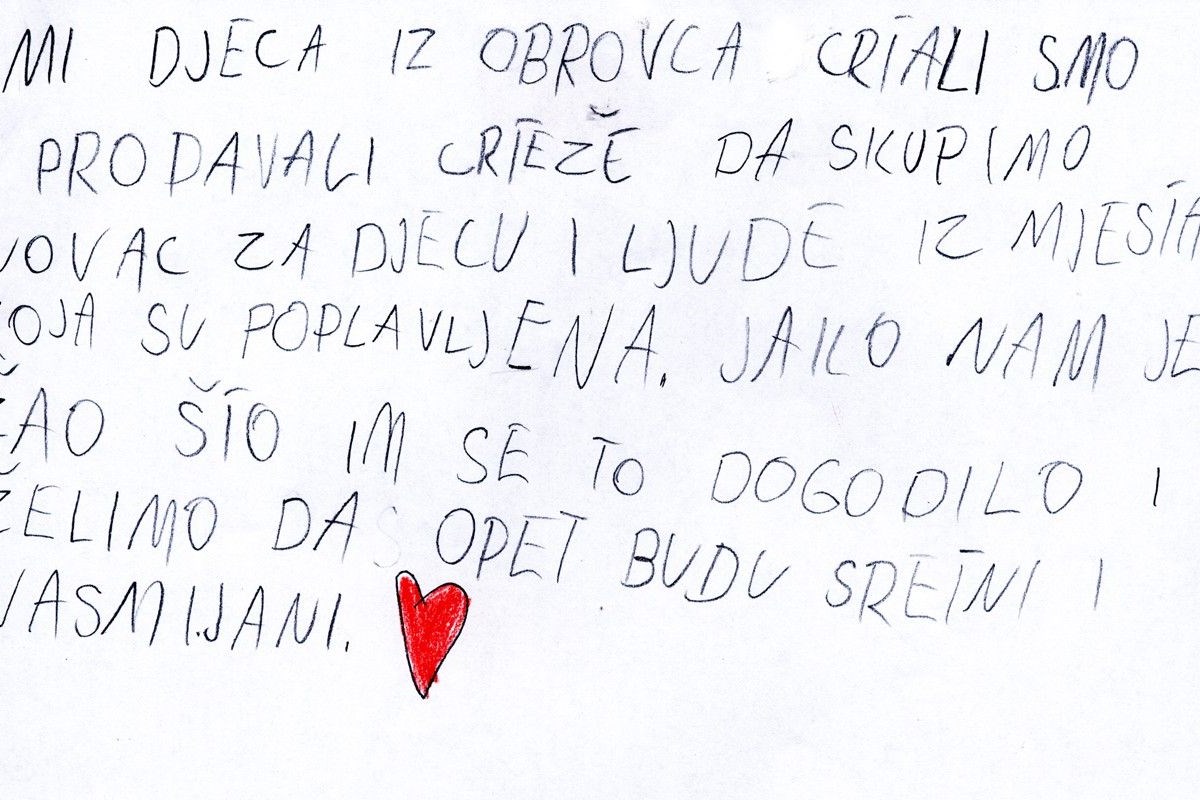 MI DJECA IZ OBROVCA CRTALI SMO
PRODAVALI CRTEŽE DA SKUPIMO
NOVAC ZA DJECU I LJUDE IZ MJESTA
KOJA SU POPLAVLJENA. JAKO NAM JE
ŽAO ŠTO IM SE TO DOGODILO I
ŽELIMO DA OPET BUDU SRETNI I
NASMIJANI.